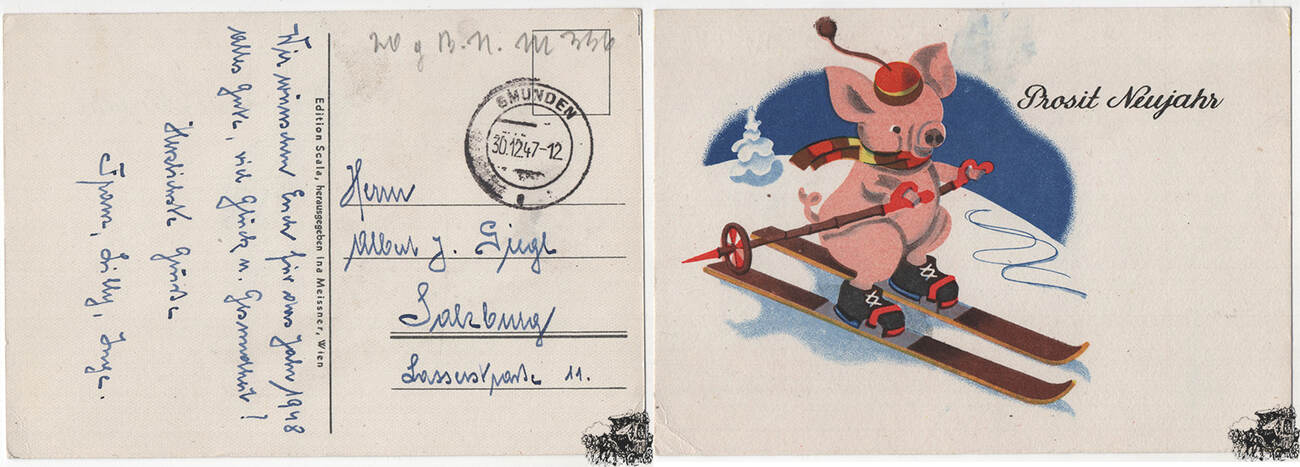 Wir wünschen Euch für das Jahr 1948
alles Gute, viel Glück u. Gesundheit!
Herzlichste Grüße
Lilly, Inge.
Edition Scala, herausgegeben Ina Meissner, Wien
20 g B. N. M 336
GMUNDEN
30.12.47-12
Herrn
Albert J. Giegl
Salzburg
Lasserstraße 11.
Prosit Neujahr